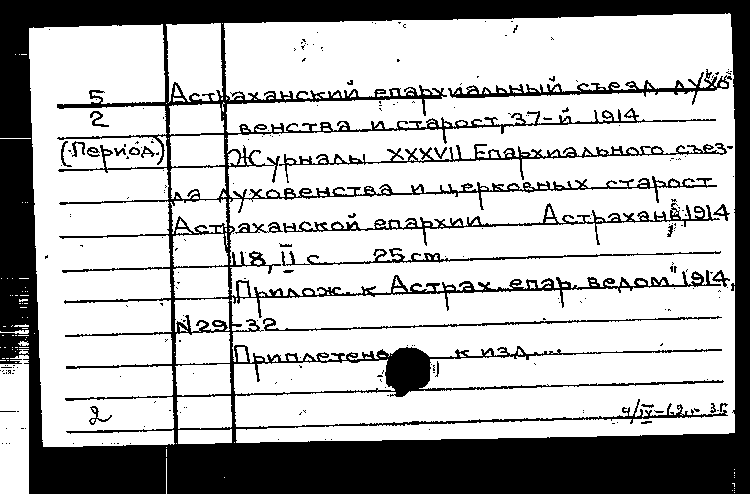 5 Астраханский епархиальный съезд духо-
2 венства и старост, 37-й. 1914
(Период.) Журналы XXXVII Епархиального съез-
да духовенства и церковных старост
Астраханской епархии. Астрахань, 1914
118, II с. 25 cm.
Прилож. к Астрах. епар. ведом." 1914,
N 29-32
Приплетено к изд....
2